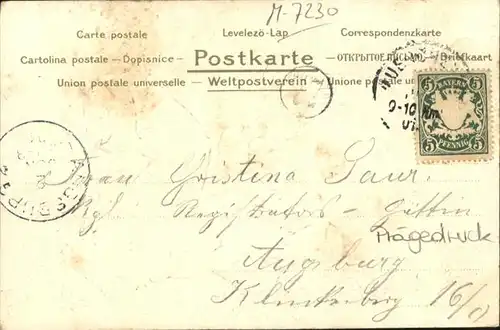 M-7230
Carte postale Levelezö-Lap Correspondenzkarte
Cartolina postale — Dopisnice — Postkarte — ОТКРЫТОЕ ПИСЬМО — Briefkaart
Union postale universelle — Weltpostverein — Unione postale
BAYERN
5 5
PFENNIG
5 5
9-10
Frau Cristina Saur.
Kgl. Registrators-Gattin
Prägedruck
Augsburg
Klinkerberg 16/0